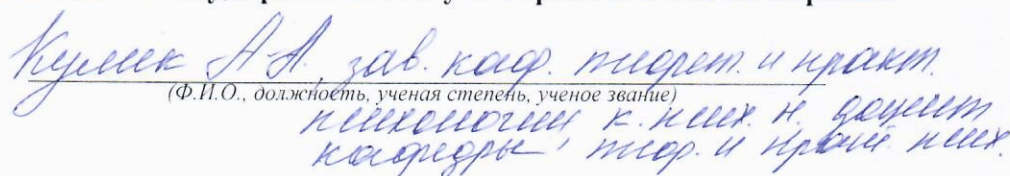 Кулик А.А., зав. каф. теорет. и практ.
(Ф.И.О., должность, ученая степень, ученое звание)
психологии, к. псих. н. доцент
кафедры теор. и практ. псих.